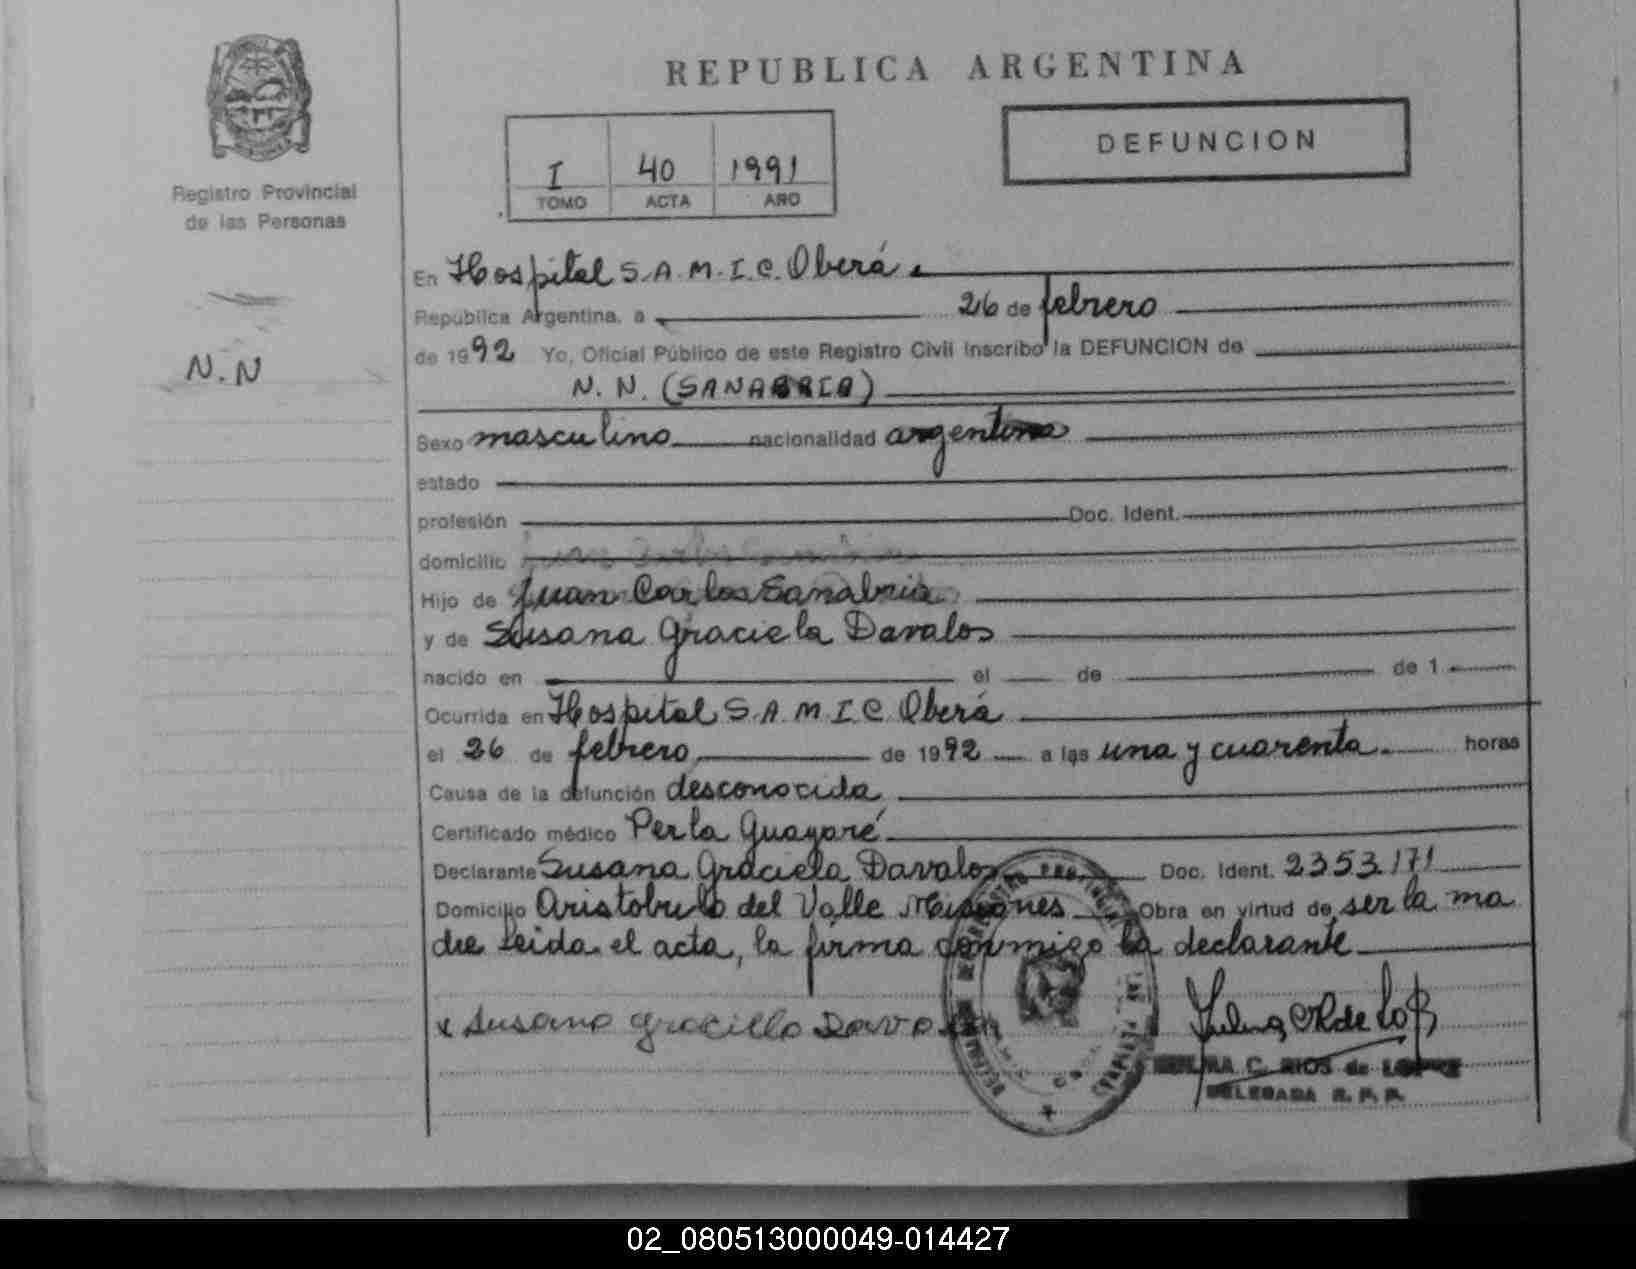 REPUBLICA ARGENTINA
DEFUNCION
I 40 1991
TOMO ACTA AÑO
Registro Provincial
de las Personas
N.N
En Hospital S.A.M.I.C. Oberá
Republica Argentina, a 26 de febrero
de 1992 Yo, Oficial Público de este Registro Civil inscribo la DEFUNCION de
N. N. (SANABRIA)
Sexo masculino nacionalidad argentina
estado
profesión Doc. Ident.
domicilio
Hijo de Juan Carlos Sanabria
y de Susana Graciela Davalos
nacido en el de de 1
Ocurrida en Hospital S.A.M.I.C Oberá
el 26 de febrero de 1992 a las una y cuarenta horas
Causa de la defunción desconocida
Certificado médico Perla Guayaré
Declarante Susana Graciela Davalos Doc. Ident. 2353.171
Domicilio Aristobulo del Valle Misiones Obra en virtud de ser la ma
dre leida el acta, la firma conmigo la declarante
x Susana
C. RIOS de LOPEZ
DELEGADA R. P. P.
02_080513000049-014427